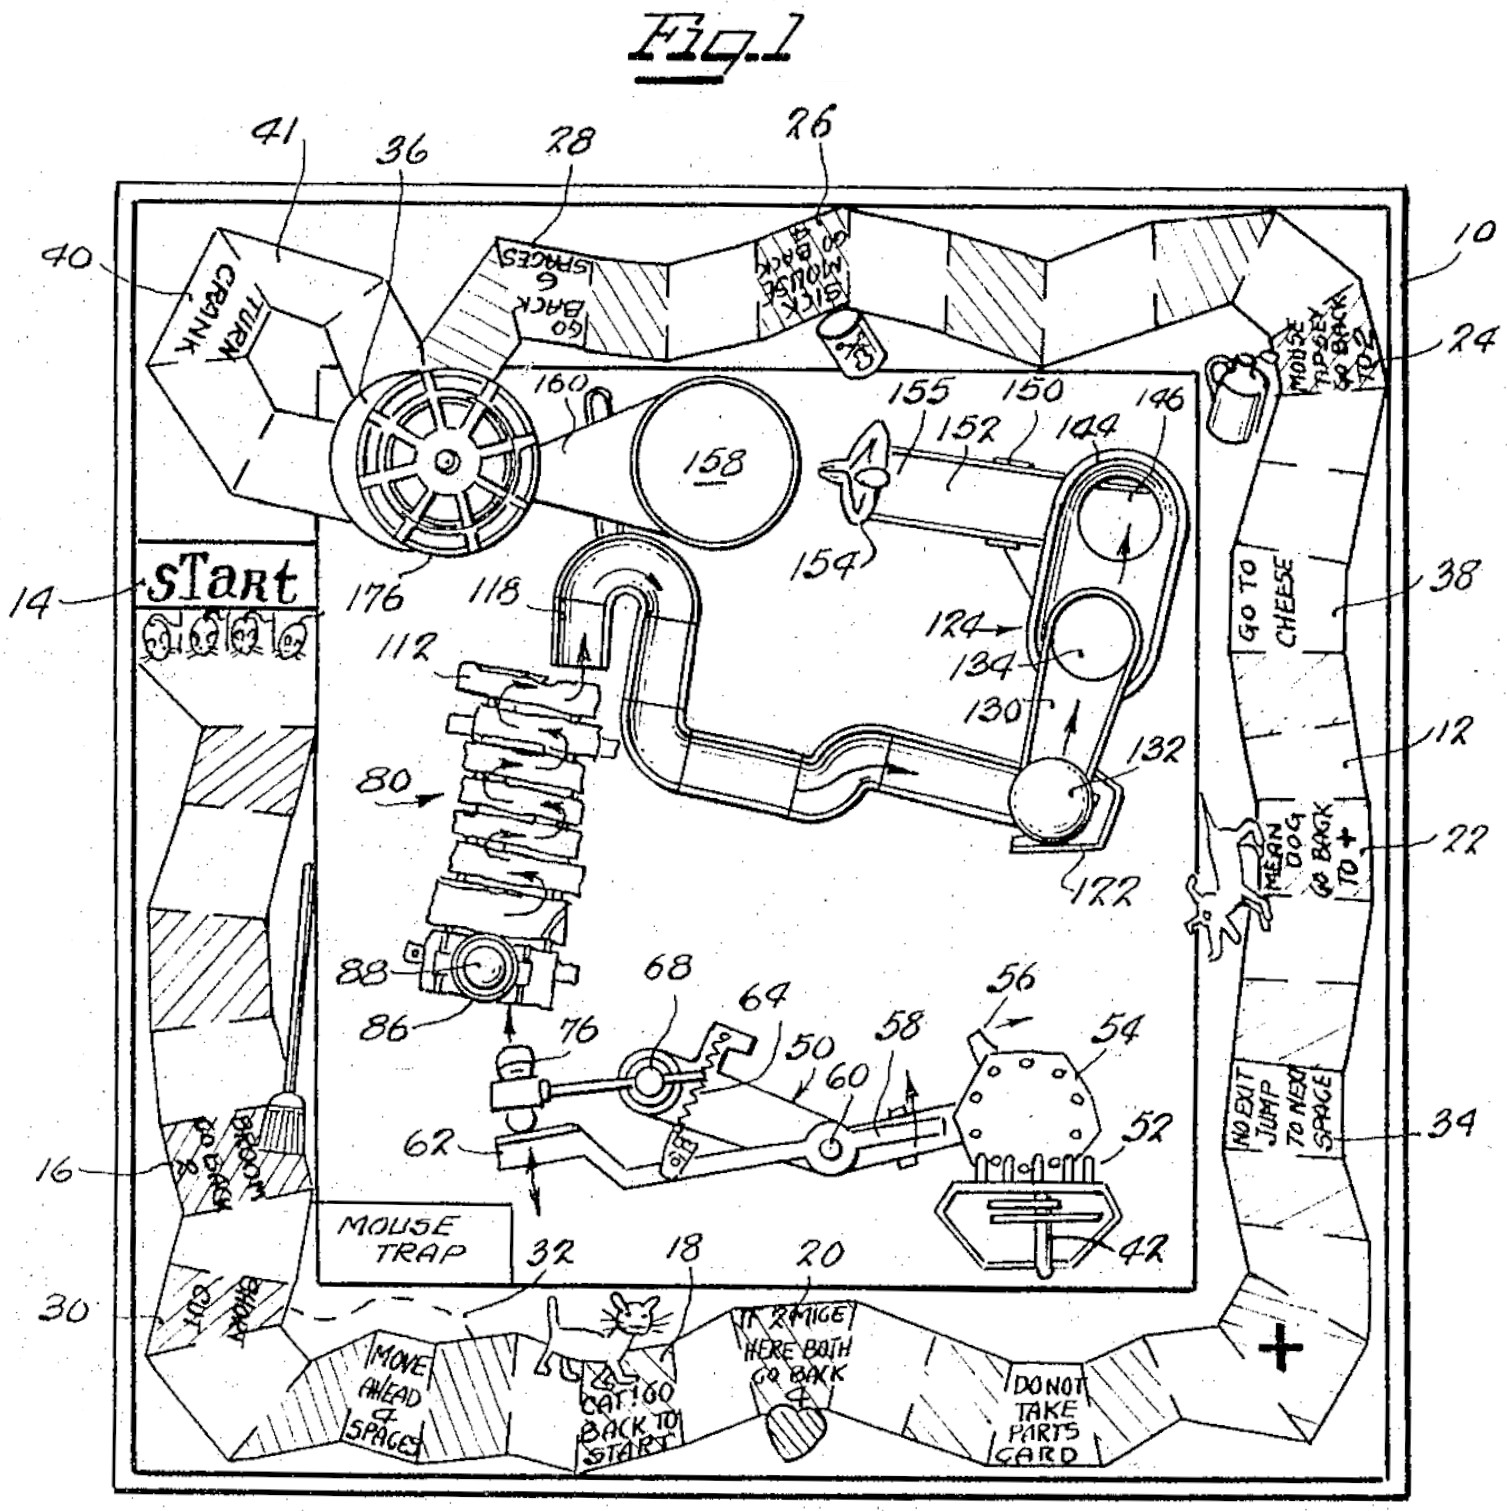 Fig.1
41
36
28
26
40
10
TURN
CRANK
GO
BACK
6
SPACES
SICK
MOUSE
GO BACK
MOUSE
TIPSEY
GO BACK
TO 2
24
160
158
155
150
152
144
146
154
14
START
176
118
124
134
GO TO
CHEESE
38
112
130
12
80
132
MEAN
DOG
GO BACK
TO +
22
122
88
86
76
68
64
50
58
60
56
54
52
NO EXIT
JUMP
TO NEXT
SPACE
34
62
BROOM
GO BACK
2
16
MOUSE
TRAP
42
32
18
20
SHORT
CUT
30
MOVE
AHEAD
4
SPACES
CAT! GO
BACK TO
START
IF 2 MICE
HERE BOTH
GO BACK
4
DO NOT
TAKE
PARTS
CARD
+